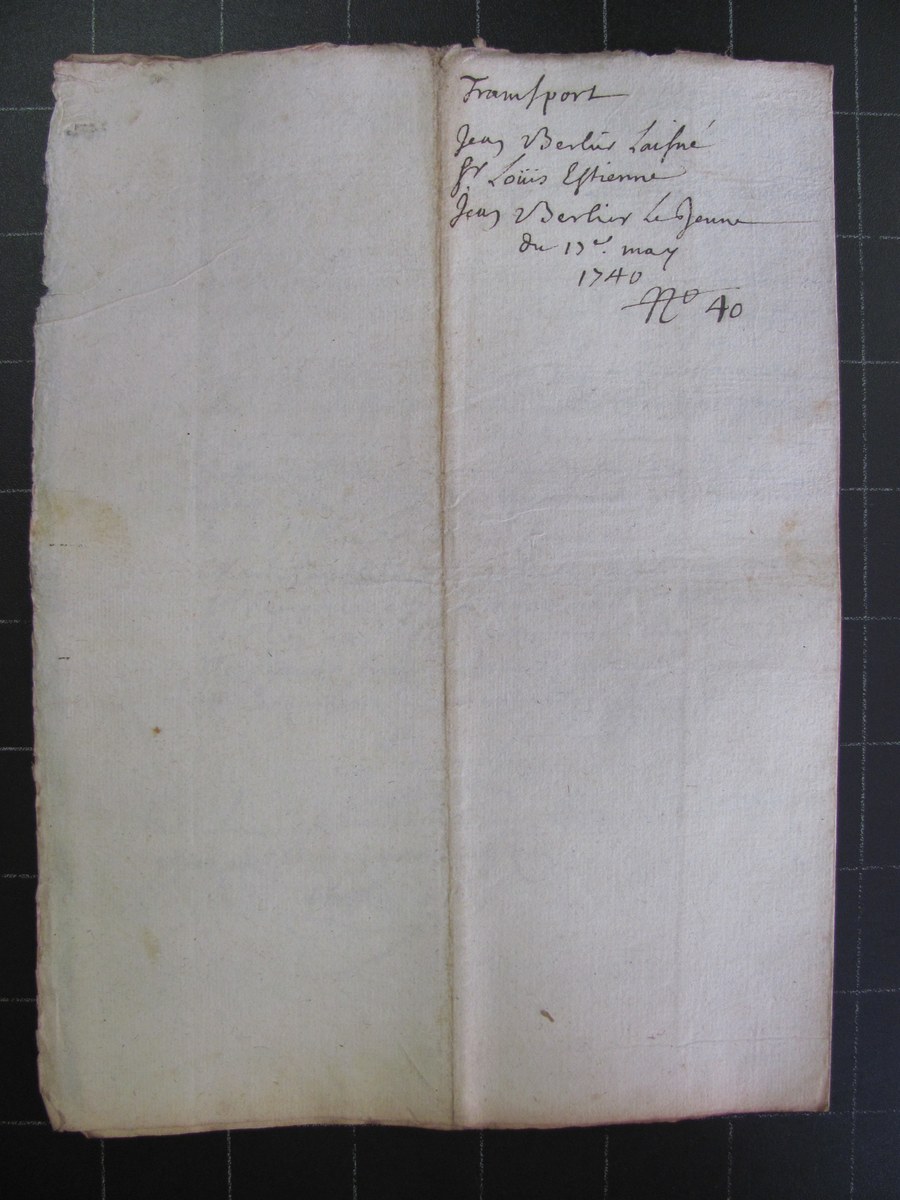 Transport
Jean Berlier Laisné
Sr Loüis Estienne
Jean Berlier Le Jeune
du 17e. may
1740
No 40